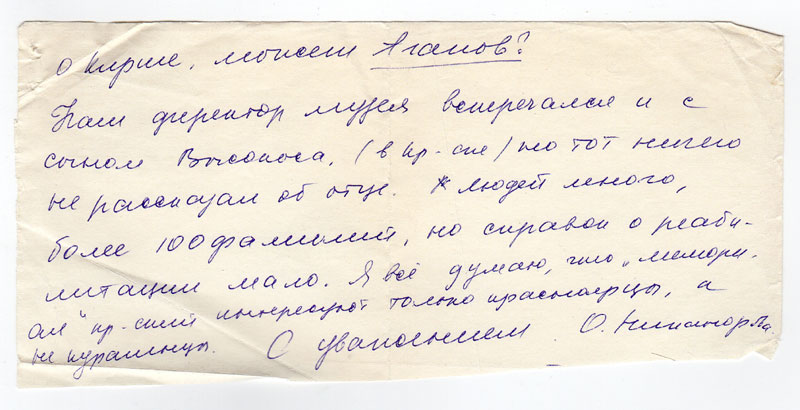 о Кирше, может Агапов?
Наш директор музея встречался и с
сыном Высопоса, (в кр-ске) но тот ничего
не рассказал об отце. Людей много,
более 100 фамилий, но справок о реаби-
литации мало. Я всё думаю, что „мемори-
ал" кр-ский интересуют только красноярцы, а
не курагинцы. С уважением О.